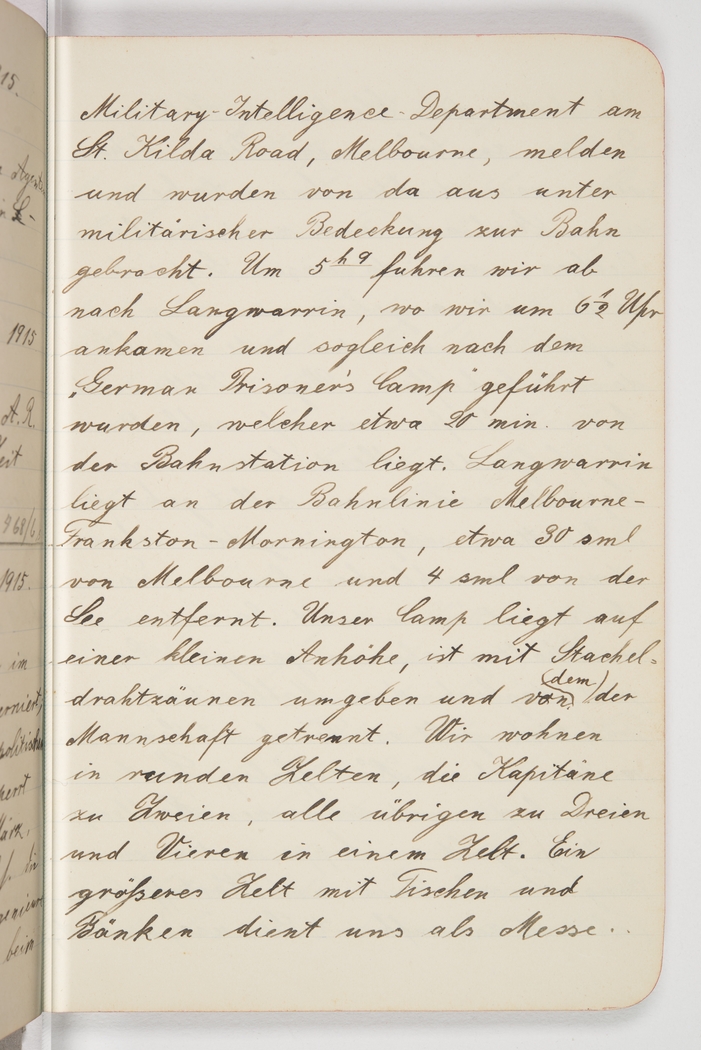 Military-Intelligence-Department am
St. Kilda Road, Melbourne, melden
und wurden von da aus unter
militärischer Bedeckung zur Bahn
gebracht. Um 5 h a fuhren wir ab
nach Langwarrin, wo wir um 6 1/2 Uhr
ankamen und sogleich nach dem
„German Prisoner's Camp" geführt
wurden, welcher etwa 20 min. von
der Bahnstation liegt. Langwarrin
liegt an der Bahnlinie Melbourne-
Frankston-Mornington, etwa 30 sml
von Melbourne und 4 sml von der
See entfernt. Unser Camp liegt auf
einer kleinen Anhöhe, ist mit Stachel-
drahtzäunen umgeben und von (dem) der
Mannschaft getrennt. Wir wohnen
in runden Zelten, die Kapitäne
zu Zweien, alle übrigen zu Dreien
und Vieren in einem Zelt. Ein
größeres Zelt mit Tischen und
Bänken dient uns als Messe.
15.
1915
A. R.
1915.
im
beim